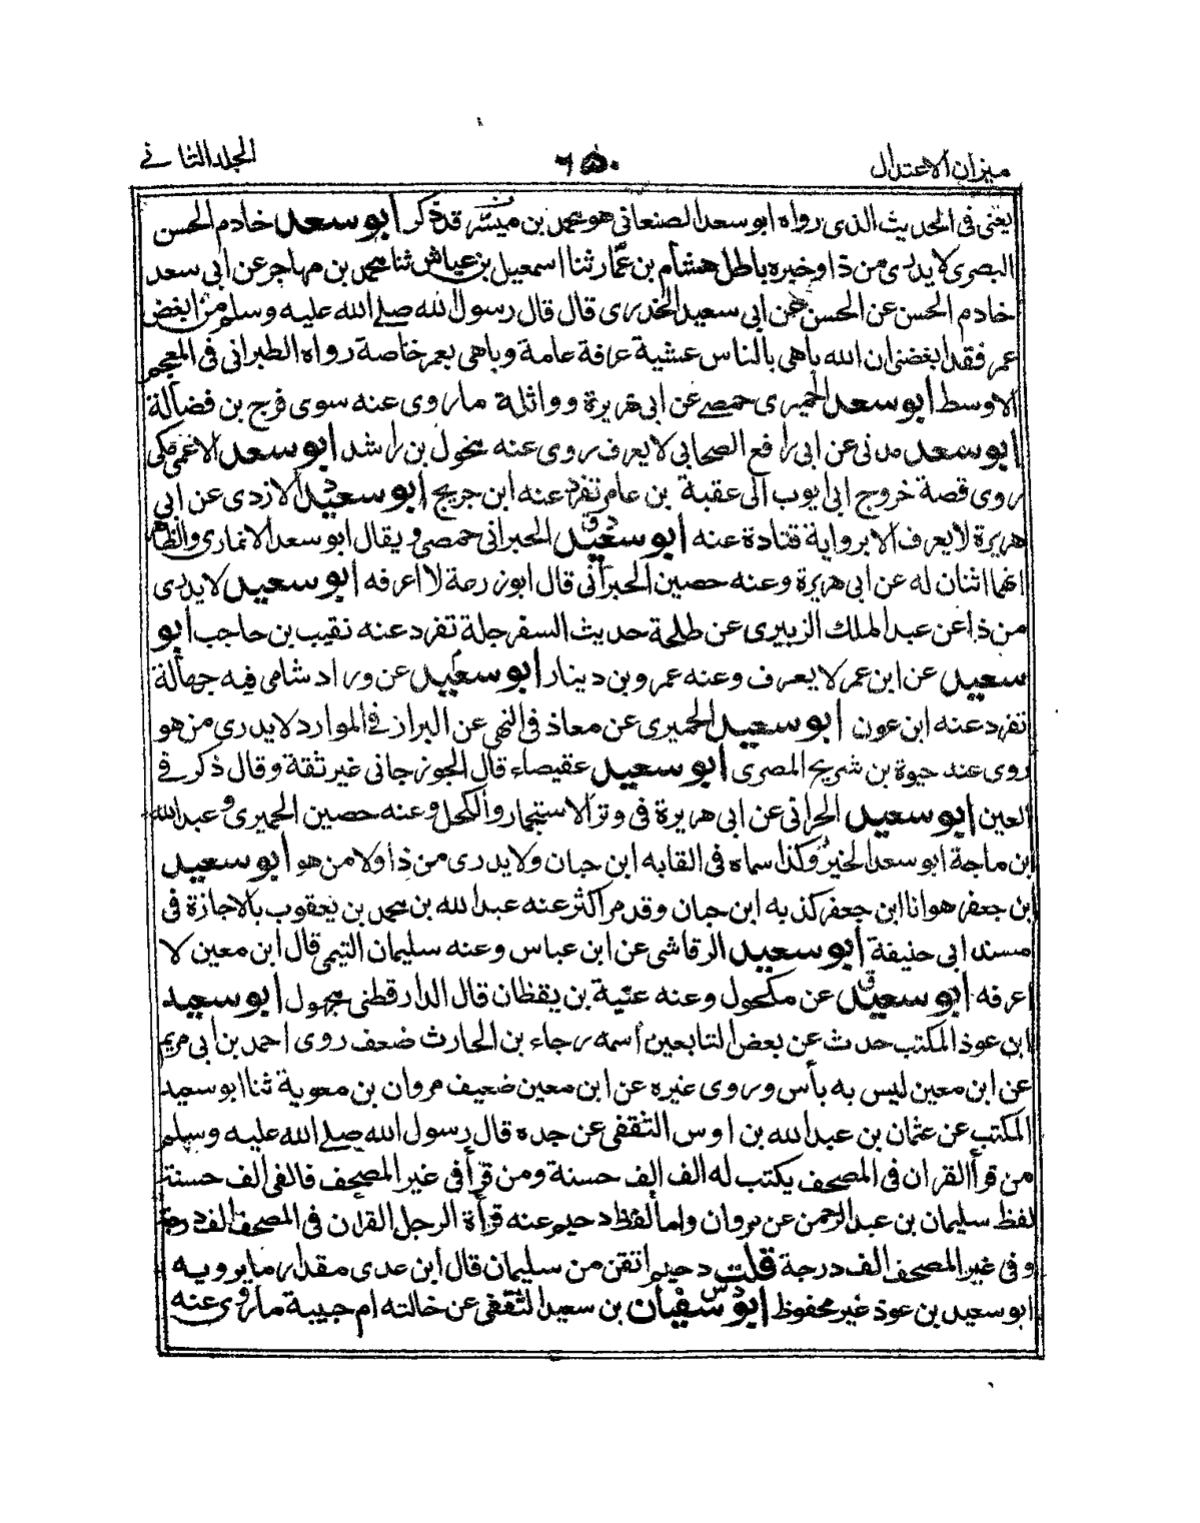 ميزان الاعتدال
٦٥٠
المجلد الثاني
يعنى فى الحديث الذى رواه ابو سعد الصنعانى هو محمد بن ميسر قد ذكر ابو سعد خادم الحسن
البصرى لا يدرى من ذا وخبره باطل هشام بن عمار ثنا اسمعيل بن عياش ثنا محمد بن مهاجر عن ابى سعد
خادم الحسن عن الحسن عن ابى سعيد الخدرى قال قال رسول الله صلے الله عليه وسلم من ابغض
عمر فقد ابغضنى ان الله باهى بالناس عشية عرفة عامة وباهى بعمر خاصة رواه الطبرانى فى المعجم
الاوسط ابو سعد الحميرى حمصے عن ابى هريرة وواثلة ما روى عنه سوى فرج بن فضالة
ابو سعد مدنى عن ابى رافع الصحابى لا يعرف روى عنه مخول بن راشد ابو سعد الاعمى مكى
روى قصة خروج ابى ايوب الى عقبة بن عامر تفرد عنه ابن جريج ابو سعيد الازدى عن ابى
هريرة لا يعرف الا برواية قتادة عنه ابو سعيد ق الحبرانى حمصى ويقال ابو سعد الانمارى والظاهر
انهما اثنان له عن ابى هريرة وعنه حصين الحبرانى قال ابو زرعة لا اعرفه ابو سعيد لا يدرى
من ذا عن عبد الملك الزبيرى عن طلحة حديث السفرجلة تفرد عنه نقيب بن حاجب ابو
سعيد عن ابن عمر لا يعرف وعنه عمرو بن دينار ابو سعيد عن وراد شامى فيه جهالة
تفرد عنه ابن عون ابو سعيد الحميرى عن معاذ فى النهى عن البراز فے الموارد لا يدرى من هو
روى عنه حيوة بن شريح المصرى ابو سعيد عقيصاء قال الجوزجانى غير ثقة وقال ذكر فے
العين ابو سعيد الحرانى عن ابى هريرة فى وتر الاستجمار والكحل وعنه حصين الحميرى و عبد الله
ابن ماجة ابو سعد الخير وكذا سماه فى القابه ابن حبان ولا يدرى من ذا ولا من هو ابو سعيد
ابن جعفر هو انا ابن جعفر كذبه ابن حبان وقد مر اكثر عنه عبد الله بن محمد بن يعقوب بالاجازة فى
مسند ابى حنيفة ابو سعيد الرقاشى عن ابن عباس وعنه سليمان التيمى قال ابن معين لا
اعرفه ابو سعيد ق عن مكحول وعنه عتبة بن يقظان قال الدارقطنى مجهول ابو سعيد
ابن عوذ المكتب حدث عن بعض التابعين اسمه رجاء بن الحارث ضعف روى احمد بن ابى مريم
عن ابن معين ليس به بأس وروى غيره عن ابن معين ضعيف مروان بن معوية ثنا ابو سعيد
المكتب عن عثمان بن عبد الله بن اوس الثقفى عن جده قال رسول الله صلے الله عليه وسلم
من قرأ القران فى المصحف يكتب له الف الف حسنة ومن قرأ فى غير المصحف فالفى الف حسنة
لفظ سليمان بن عبد الرحمن عن مروان واما لفظ دحيم عنه قرأة الرجل القران فى المصحف الف درجة
و فى غير المصحف الف درجة قلت دحيم اتقن من سليمان قال ابن عدى مقدار ما يرويه
ابو سعيد بن عوذ غير محفوظ ابو سفيان د س بن سعيد الثقفى عن خالته ام حبيبة ما روى عنه